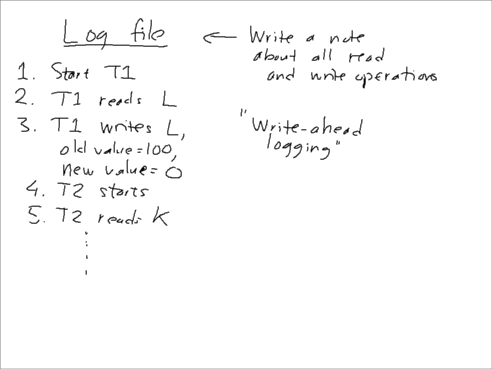 Log file
← Write a note
about all read
and write operations
1. Start T1
2. T1 reads L
3. T1 writes L,
old value=100,
new value=0
4. T2 starts
5. T2 reads K
"Write-ahead
logging"